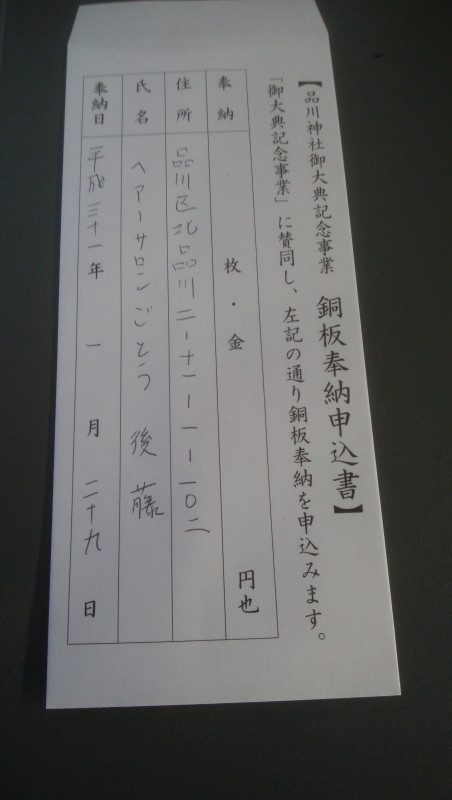 【品川神社御大典記念事業 銅板奉納申込書】
「御大典記念事業」に賛同し、左記の通り銅板奉納を申込みます。
奉納 枚・金 円也
住所 品川区北品川二-十一-一-一〇二
氏名 ヘアーサロンごとう 後藤
奉納日 平成三十一年 一 月 二十九 日